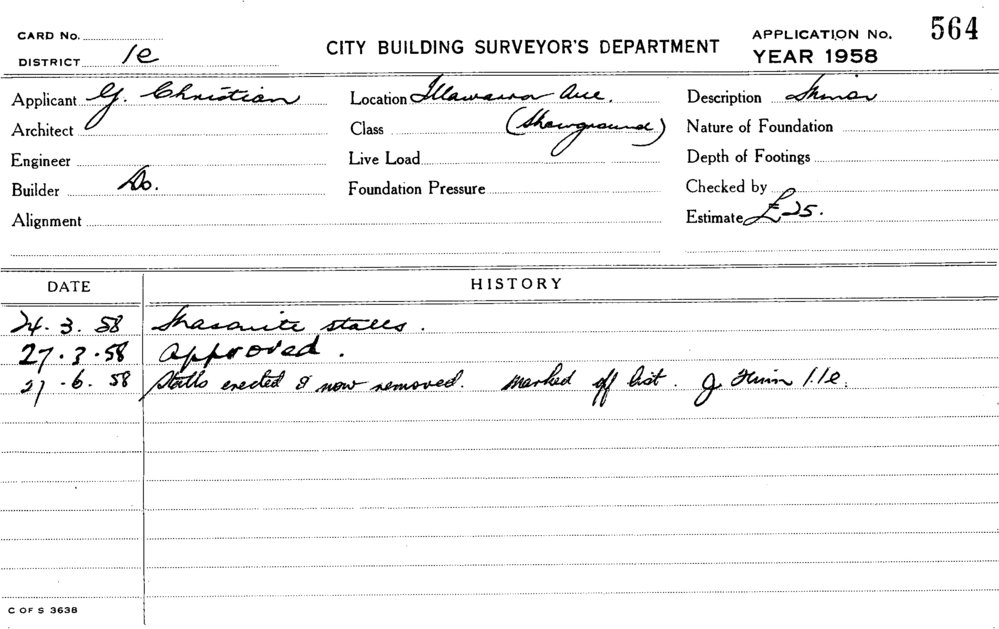 CARD No. CITY BUILDING SURVEYOR'S DEPARTMENT APPLICATION No. 564
DISTRICT 1e YEAR 1958
Applicant G. Christian Location Illawarra Ave. Description Minor
Architect Class (Showground) Nature of Foundation
Engineer Live Load Depth of Footings
Builder Do. Foundation Pressure Checked by
Alignment Estimate £25.
DATE HISTORY
24.3.58 Masonite stalls.
27.3.58 Approved.
27.6.58 Stalls erected & now removed. Marked off list. J 1.1e.
C OF S 3638